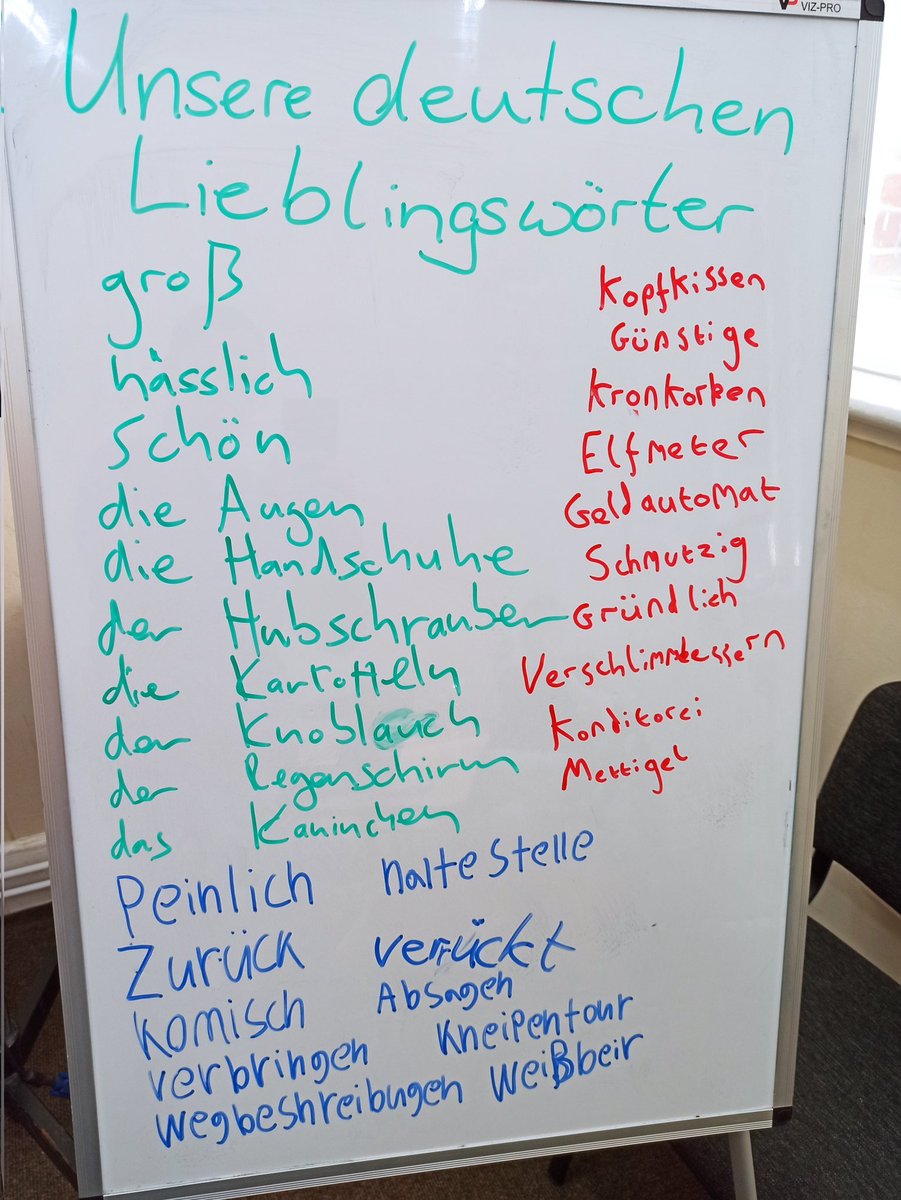 VIZ-PRO
Unsere deutschen
Lieblingswörter
groß
hässlich
schön
die Augen
die Handschuhe
der Hubschrauber
die Kartoffeln
der Knoblauch
der Regenschirm
das Kaninchen
Kopfkissen
Günstige
Kronkorken
Elfmeter
Geldautomat
Schmutzig
Gründlich
Verschlimmbessern
Konditorei
Mettigel
Peinlich
Zurück
Komisch
verbringen
wegbeshreibugen
Haltestelle
verrückt
Absagen
Kneipentour
weißbeir